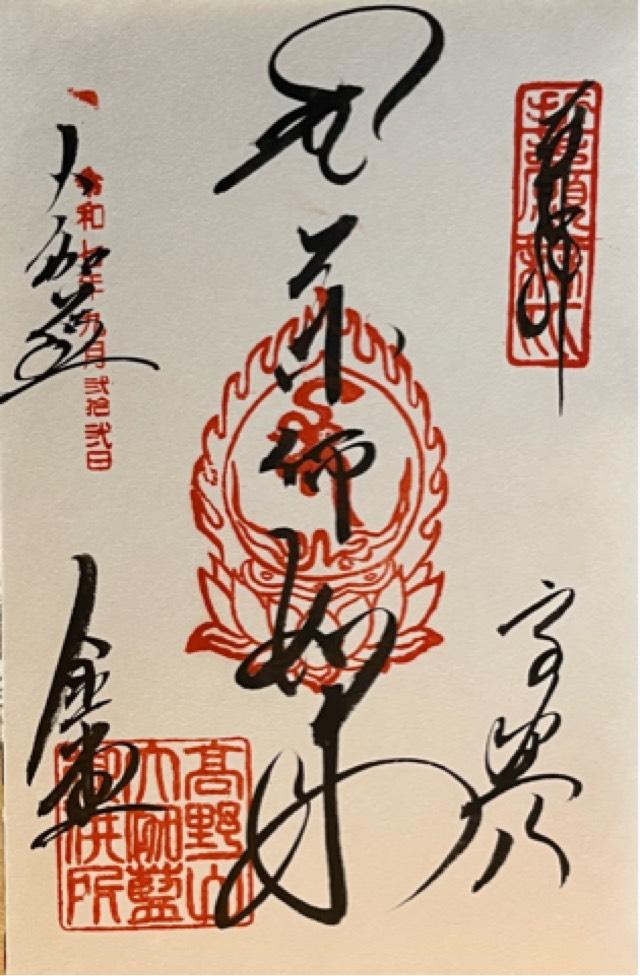 奉拝
高野山
薬師如来
大伽藍
金堂
令和七年九月弐拾弐日
高野山
大伽藍
御供所